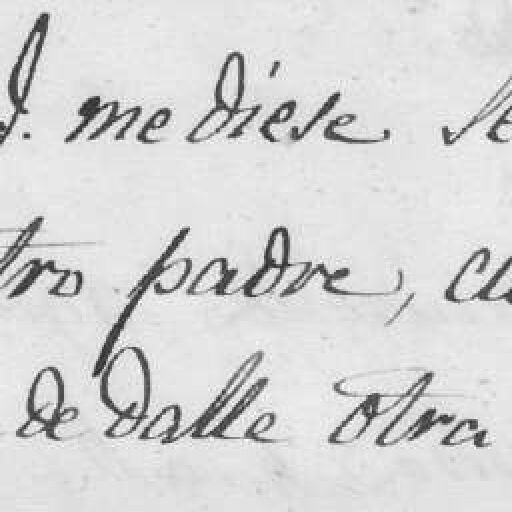 me diese
padre,
de dalle otra